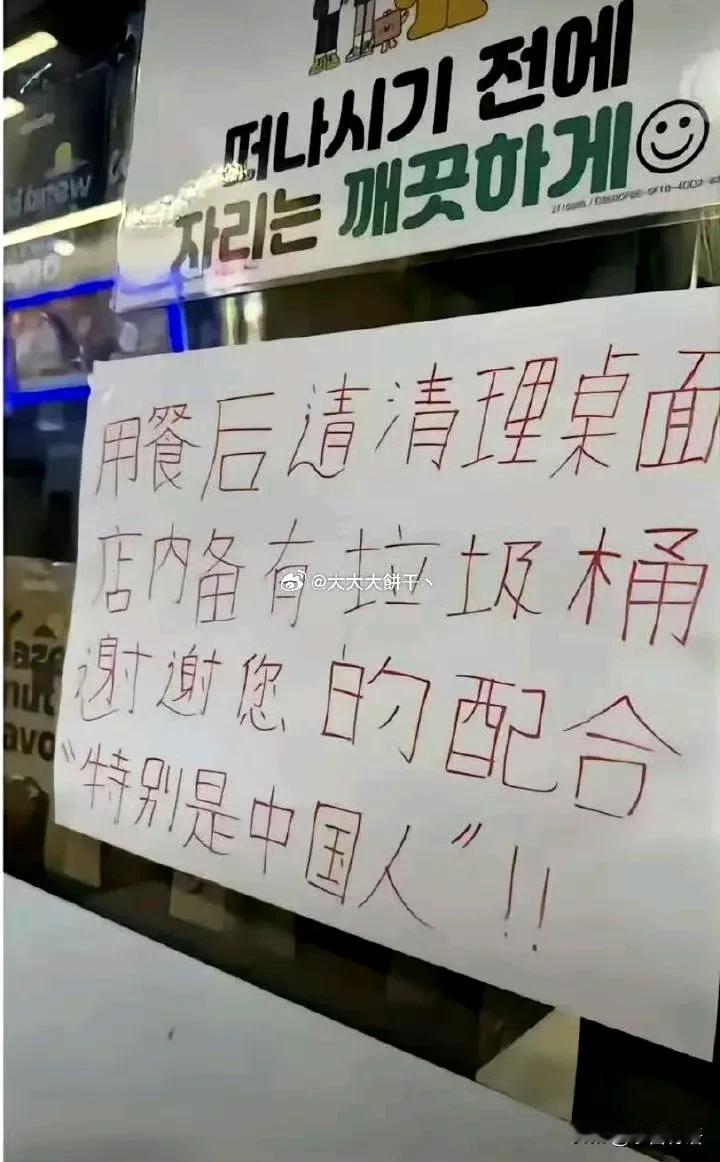 떠나시기 전에
자리는 깨끗하게
用餐后请清理桌面
店内备有垃圾桶
@大大大餅干丶
谢谢您的配合
“特别是中国人”!!